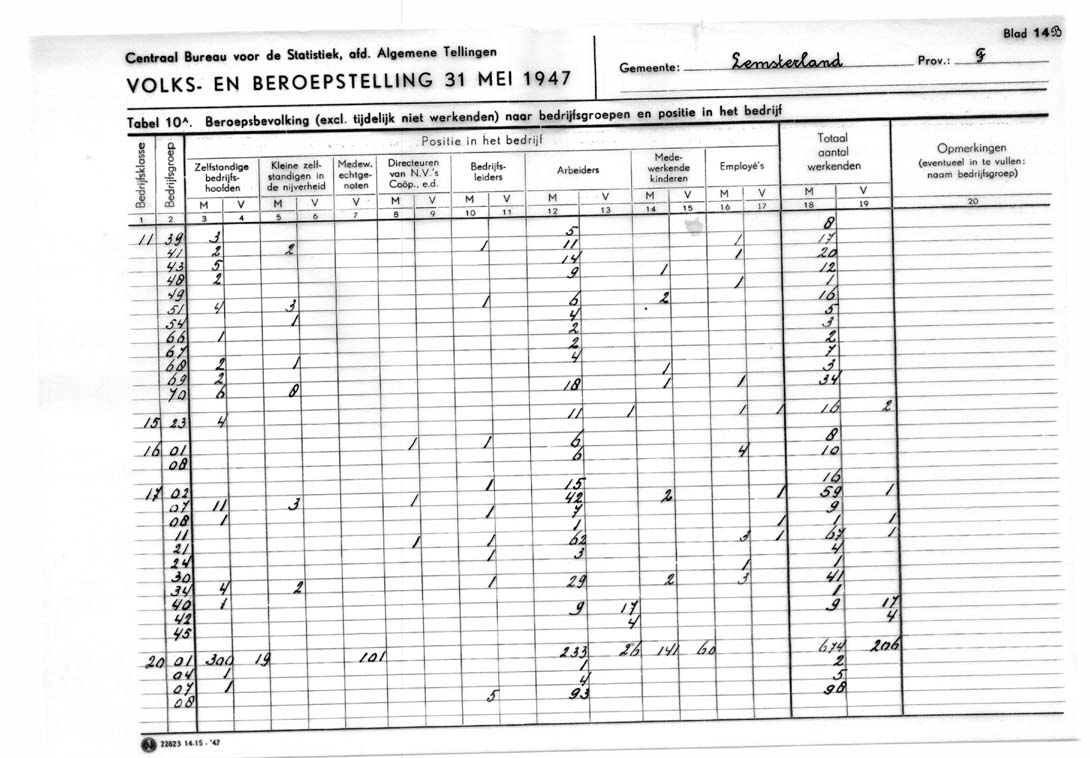 Blad 14B
Centraal Bureau voor de Statistiek, afd. Algemene Tellingen
VOLKS- EN BEROEPSTELLING 31 MEI 1947
Gemeente: Lemsterland Prov.: F
Tabel 10A. Beroepsbevolking (excl. tijdelijk niet werkenden) naar bedrijfsgroepen en positie in het bedrijf
Bedrijfsklasse
Bedrijfsgroep
Positie in het bedrijf
Zelfstandige
bedrijfs-
hoofden
Kleine zelf-
standigen in
de nijverheid
Medew.
echtge-
noten
Directeuren
van N.V.'s
Coöp., e.d.
Bedrijfs-
leiders
Arbeiders
Mede-
werkende
kinderen
Employé's
Totaal
aantal
werkenden
Opmerkingen
(eventueel in te vullen:
naam bedrijfsgroep)
M V M V V M V M V M V M V M V M V
1 2 3 4 5 6 7 8 9 10 11 12 13 14 15 16 17 18 19 20
11 39 3 5 8
41 2 2 1 11 1 17
43 5 14 1 20
48 2 9 1 12
49 1 1
51 4 3 1 6 2 16
54 1 4 5
66 1 2 3
67 2 2
68 2 1 4 7
69 2 1 3
70 6 8 18 1 1 34
15 23 4 11 1 1 1 16 2
16 01 1 1 6 8
08 6 4 10
17 02 1 15 16
07 11 3 1 42 2 1 59 1
08 1 1 7 9
11 1 1 1 1
21 1 1 62 3 1 67 1
24 1 3 4
30 1 1
34 4 2 1 29 2 3 41
40 1 1
42 9 17 9 17
45 4 4
20 01 300 19 101 233 26 141 60 674 206
04 1 1 2
07 1 4 5
08 5 93 98
22823 14-15 - '47